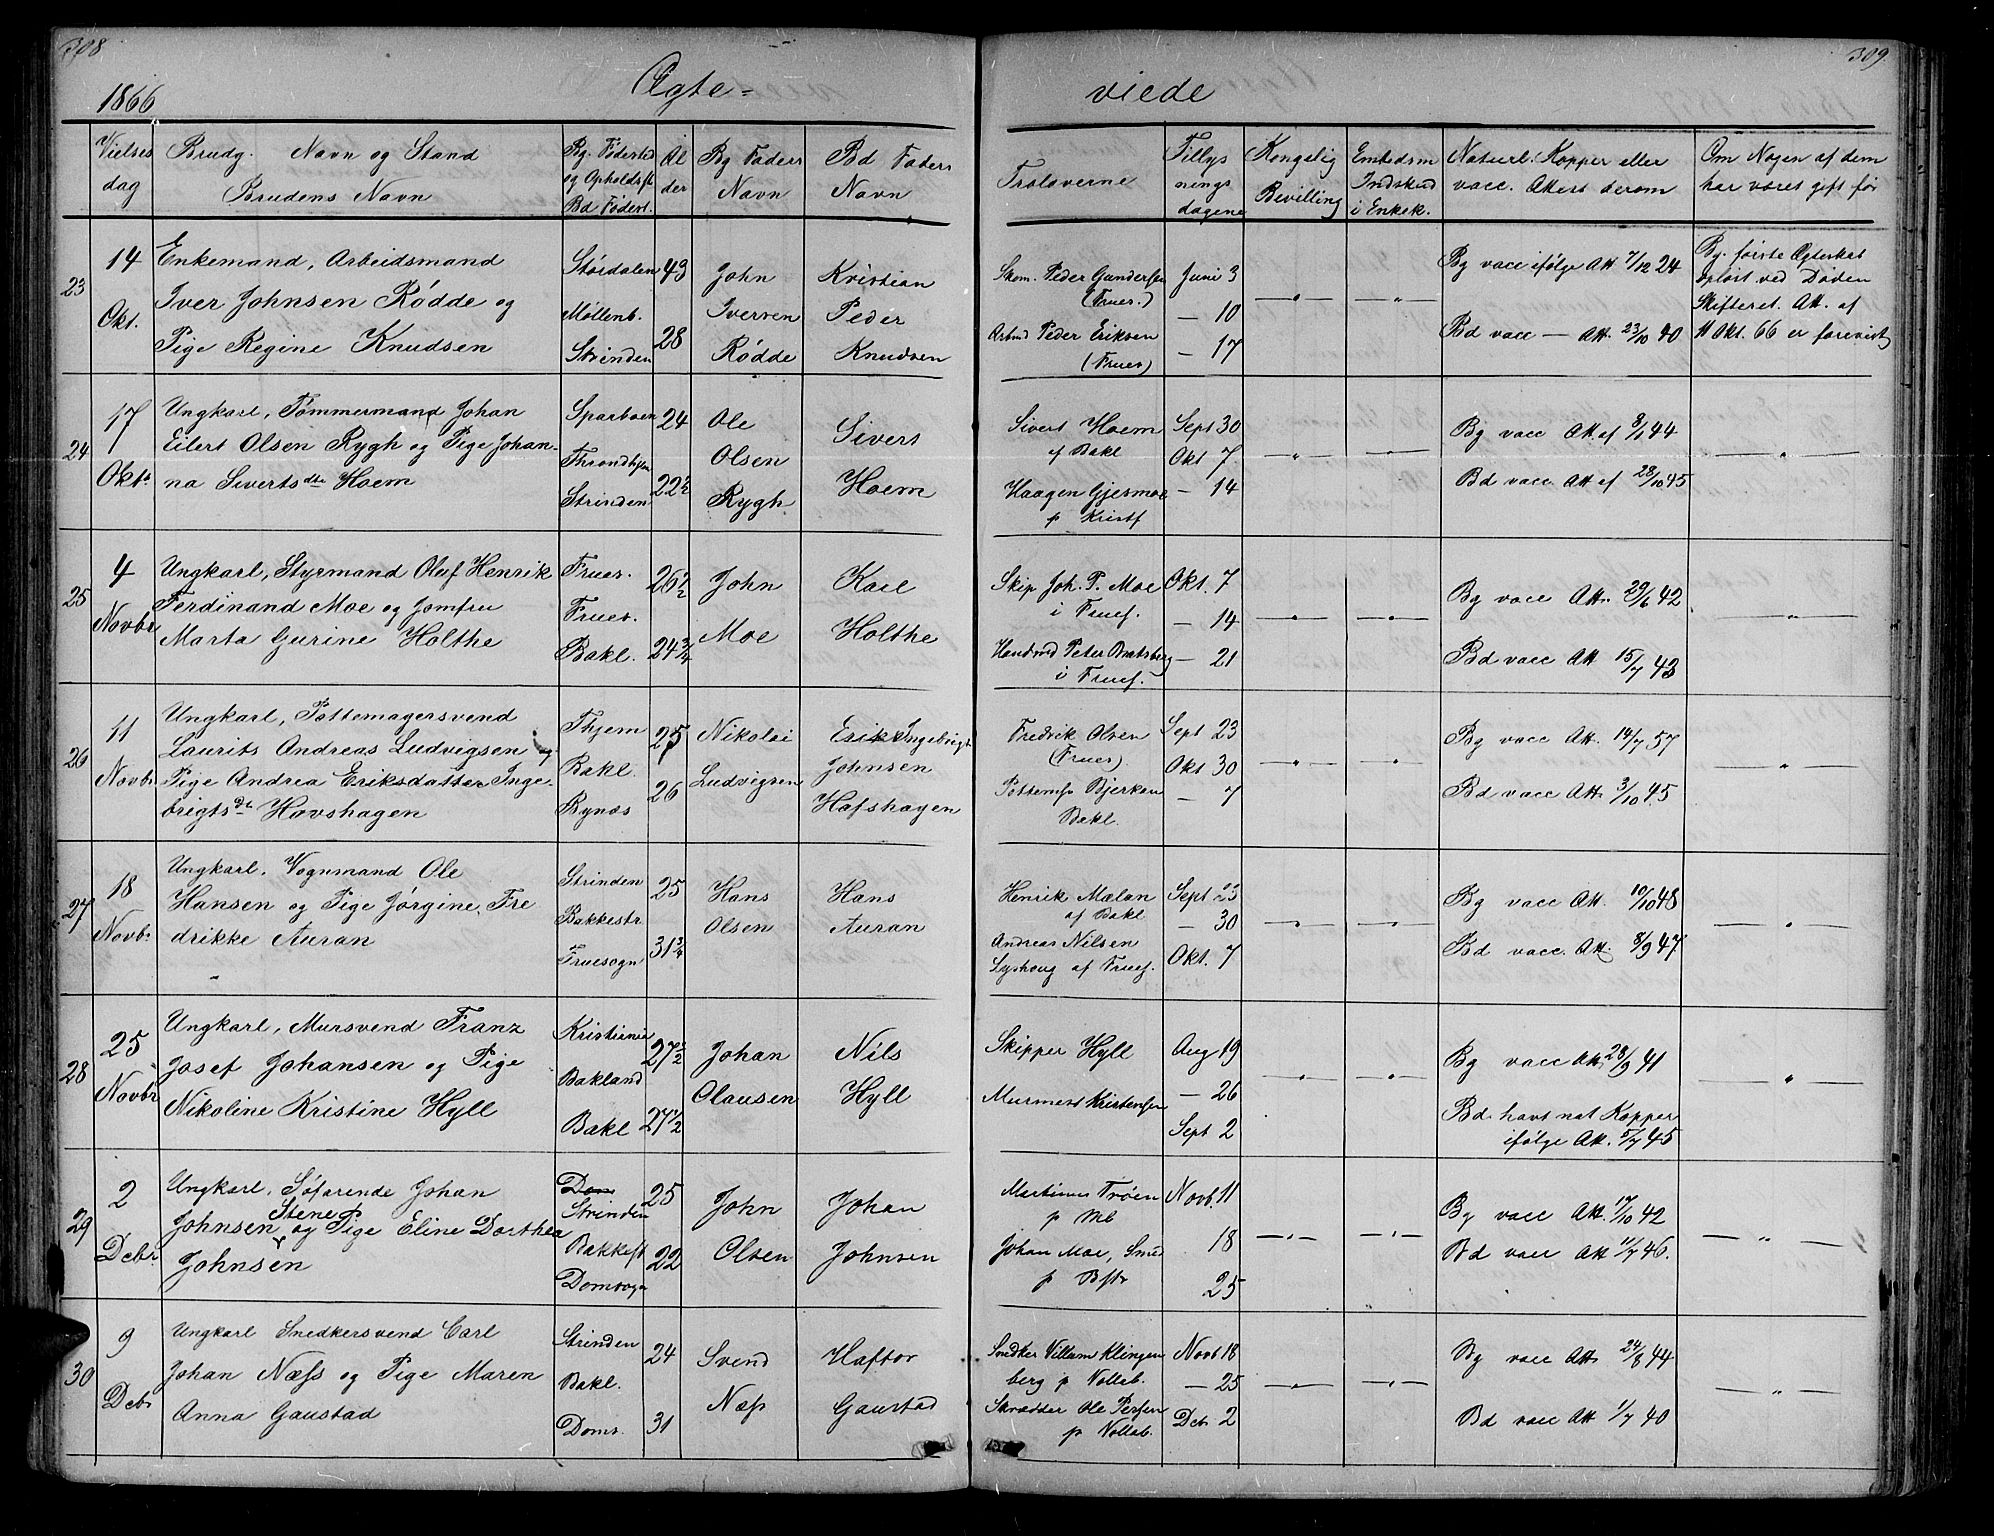 308
1866
Ægte-
viede
309
Vielses dag
Brudg. Navn og Stand
Brudens Navn
Bg. Fødested og Opholdsst
Bd Fødest.
Al der
Bg Faders Navn
Bd Faders Navn
Troloverne
Tillys nings dagene
Kongelig Bevilling
Embedsm Indskud i Enkek.
Naturl. Kopper eller vacc. Attest derom
Om Nogen af dem har været gift før
23
14 Okt.
Enkemand, Arbeidsmand
Iver Johnsen Rødde og
Pige Regine Knudsen
Størdalen
Møllenb.
Strinden
43
28
John Iversen Rødde
Kristian Peder Knudsen
Skom. Peder Gundersen
(Frues.)
Arbmd Peder Eriksen
(Frues)
Juni 3
— 10
— 17
Bg vacc ifølge Att 7/12 24
Bd vacc — Att. 23/10 40
Bg. første Ægteskab
opløst ved Døden
Skifteret. Att. af
11 Okt. 66 er forevist
24
17 Okt.
Ungkarl, Tømmermand Johan
Eilert Olsen Rygh og Pige Johan-
na Siverts dtr Hoem
Sparboen
Throndhjm
Strinden
24
22½
Ole Olsen Rygh
Sivert Hoem
Sivert Hoem
af Bakl
Haagen Gjesmoe
p Kristf
Sept 30
Okt 7
— 14
Bg vacc Att af 3/1 44
Bd vacc Att af 28/10 45
25
4 Novbr
Ungkarl, Styrmand Oluf Henrik
Ferdinand Moe og Jomfru
Marta Gurine Holthe
Frues.
Frues.
Bakl.
26½
24¾
John Moe
Karl Holthe
Skip Joh. P. Moe
i Fruef.
Handmd Peter Bratsberg
i Fruef.
Okt. 7
— 14
— 21
Bg vacc Att. 29/6 42
Bd vacc Att 15/7 43
26
11 Novbr
Ungkarl, Pottemagersvend
Laurits Andreas Ludvigsen og
Pige Andrea Eriksdatter Inge-
brigtsdt Hovshagen
Thjem
Bakl.
Bynæs
25
26
Nikolai Ludvigsen
Erik Ingebrigt Johnsen Hafshagen
Fredrik Olsen
(Frues)
Pottemgr Bjerken
Bakl.
Sept 23
Okt 30
— 7
Bg vacc Att. 14/7 57
Bd vacc Att 3/10 45
27
18 Novbr
Ungkarl. Vognmand Ole
Hansen og Pige Jørgine Fre
drikke Auran
Strinden
Bakkestr.
Fruesogn
25
31¾
Hans Olsen
Hans Auran
Henrik Mælan
af Bakl
Andreas Nilsen
Lyshoug af Fruef.
Sept 23
— 30
Okt. 7
Bg vacc Att. 10/10 48
Bd vacc. Att. 8/9 47
28
25 Novbr
Ungkarl, Mursvend Franz
Josef Johansen og Pige
Nikoline Kristine Hyll
Kristiania
Bakland
Bakl
27½
27½
Johan Olausen
Nils Hyll
Skipper Hyll
Murmest Kristensen
Aug 19
— 26
Sept 2
Bg vacc Att. 28/9 41
Bd. havt nat Kopper
ifølge Att. 5/7 45
29
2 Debr.
Ungkarl, Søfarende Johan
Johnsen Stene og Pige Eline Dorthea
Johnsen
Dom
Strinden
Bakkest
Domsogn
25
22
John Olsen
Johan Johnsen
Martinus Trøen
p Mb
Johan Moe, Smed
p Bstr
Novb. 11
18
25
Bg vacc Att. 17/10 42
Bd vacc Att 11/7 46.
30
9 Debr
Ungkarl Snedkersvend Carl
Johan Næss og Pige Maren
Anna Gaustad
Strinden
Bakl.
Doms.
24
31
Svend Næss
Haftor Gaustad
Snedker Villam Klingen
berg p Vollab.
Skrædder Ole Persen
p Vollab.
Novb. 18
— 25
Deb 2
Bg vacc Att 24/8 44
Bd vacc Att 1/7 40